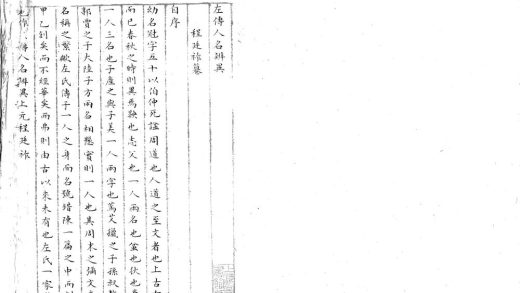 左傳人名辨異
程廷祚纂
自序
幼名冠字五十以伯仲死諡周道也人道之至文者也上古
而已春秋之時則異焉鞅也志父也一人兩名也
一人三名也子產之與子美一人兩字也蒍艾獵之于孫叔敖
郭賈之于大陸子方兩名相懸實則一人也其周末之彌文
名稱之繁歟左氏傳于一人之身而名號錯陳一篇之中而
甲乙別矣而不經筆矣而爲則由古以來未有也左氏一家
人名辨異上元程廷祚